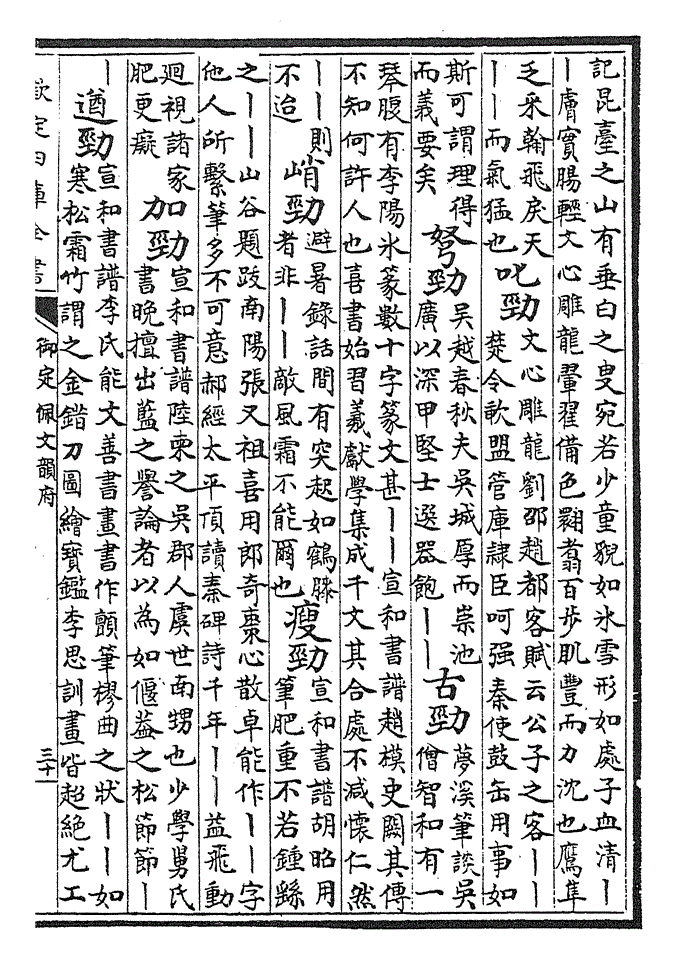 記昆臺之山有垂白之叟宛若少童貌如氷雪形如處子血清丨
丨膚實腸輕文心雕龍翬翟備色翾翥百步肌豐而力沈也鷹隼
乏采翰飛戾天
丨丨而氣猛也
叱勁
文心雕龍劉邵趙都客賦云公子之客丨丨
楚令歃盟管庫隷臣呵强秦使鼓缶用事如
斯可謂理得
而義要矣
弩勁
吳越春秋夫吳城厚而崇池
廣以深甲堅士選器飽丨丨
古勁
夢溪筆談吳
僧智和有一
琴腹有李陽氷篆數十字篆文甚丨丨宣和書譜趙模史闕其傳
不知何許人也喜書始習羲獻學集成千文其合處不減懷仁然
丨丨則
不迨
峭勁
避暑錄話間有突起如鶴膝
者非丨丨敵風霜不能爾也
瘦勁
宣和書譜胡昭用
筆肥重不若鍾繇
之丨丨山谷題跋南陽張乂祖喜用郎奇棗心散卓能作丨丨字
他人所繫筆多不可意郝經太平頂讀秦碑詩千年丨丨益飛動
廻視諸家
肥更癡
加勁
宣和書譜陸柬之吳郡人虞世南甥也少學舅氏
書晚擅出藍之譽論者以為如偃葢之松節節丨
丨
遒勁
宣和書譜李氏能文善書畫書作顫筆樛曲之狀丨丨如
寒松霜竹謂之金錯刀圖繪寳鑑李思訓畫皆超絶尤工
欽定四庫全書
御定佩文韻府
三十